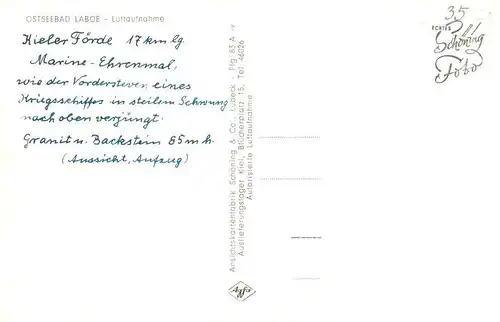 OSTSEEBAD LABOE - Luftaufnahme
Kieler Förde 17 km lg.
Marine-Ehrenmal,
wie der Vordersteven eines
Kriegsschiffes in steilem Schwung
nach oben verjüngt.
Granit u. Backstein 85 m h.
(Aussicht, Aufzug)
Ansichtskartenfabrik Schöning & Co., Lübeck - Pfg 63 A - v
Auslieferungslager Kiel, Blücherplatz 15, Tel. 46026
Autorisierte Luftaufnahme
35
ECHTES
Schöning
Foto
Agfa